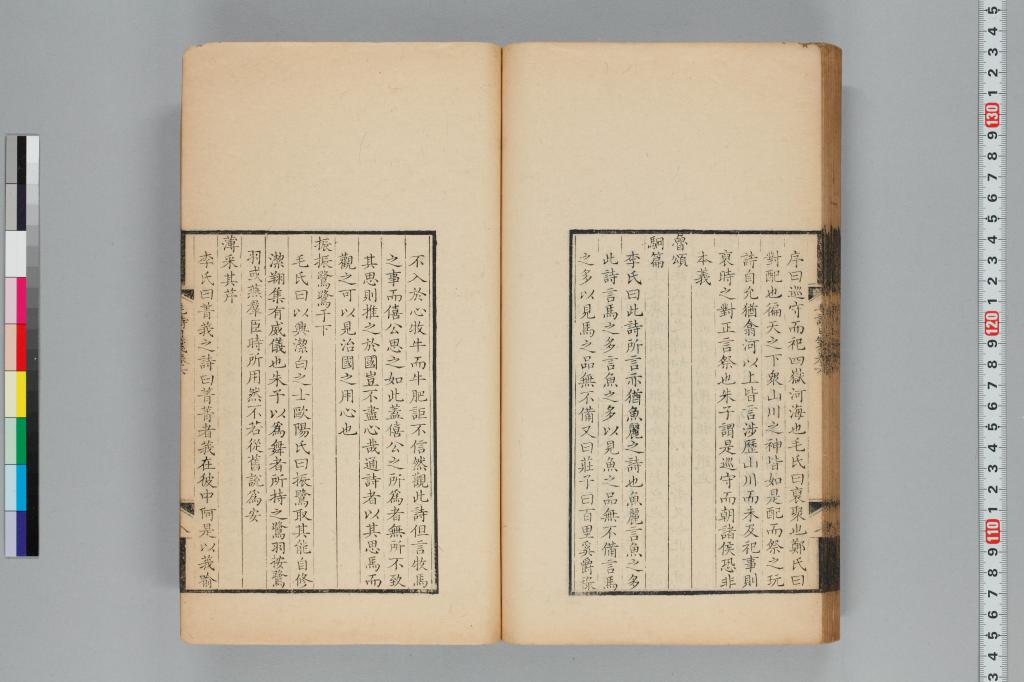 序曰巡守而祀四嶽河海也毛氏曰裒聚也鄭氏曰
對配也徧天之下衆山川之神皆如是配而祭之玩
詩自允猶翕河以上皆言涉歷山川而未及祀事則
裒時之對正言祭也朱子謂是巡守而朝諸侯恐非
本義
魯頌
駉篇
李氏曰此詩所言亦猶魚麗之詩也魚麗言魚之多
此詩言馬之多言魚之多以見魚之品無不備言馬
之多以見馬之品無不備又曰莊子曰百里奚爵祿
不入於心牧牛而牛肥詎不信然觀此詩但言牧馬
之事而僖公思之如此蓋僖公之所為者無所不致
其思則推之於國豈不盡心哉通詩者以其思馬而
觀之可以見治國之用心也
振振鷺鷺于下
毛氏曰以興潔白之士歐陽氏曰振鷺取其能自修
潔翔集有威儀也朱子以為舞者所持之鷺羽按鷺
羽或燕羣臣時所用然不若從舊說為安
薄采其芹
李氏曰菁莪之詩曰菁菁者莪在彼中阿是以莪喻